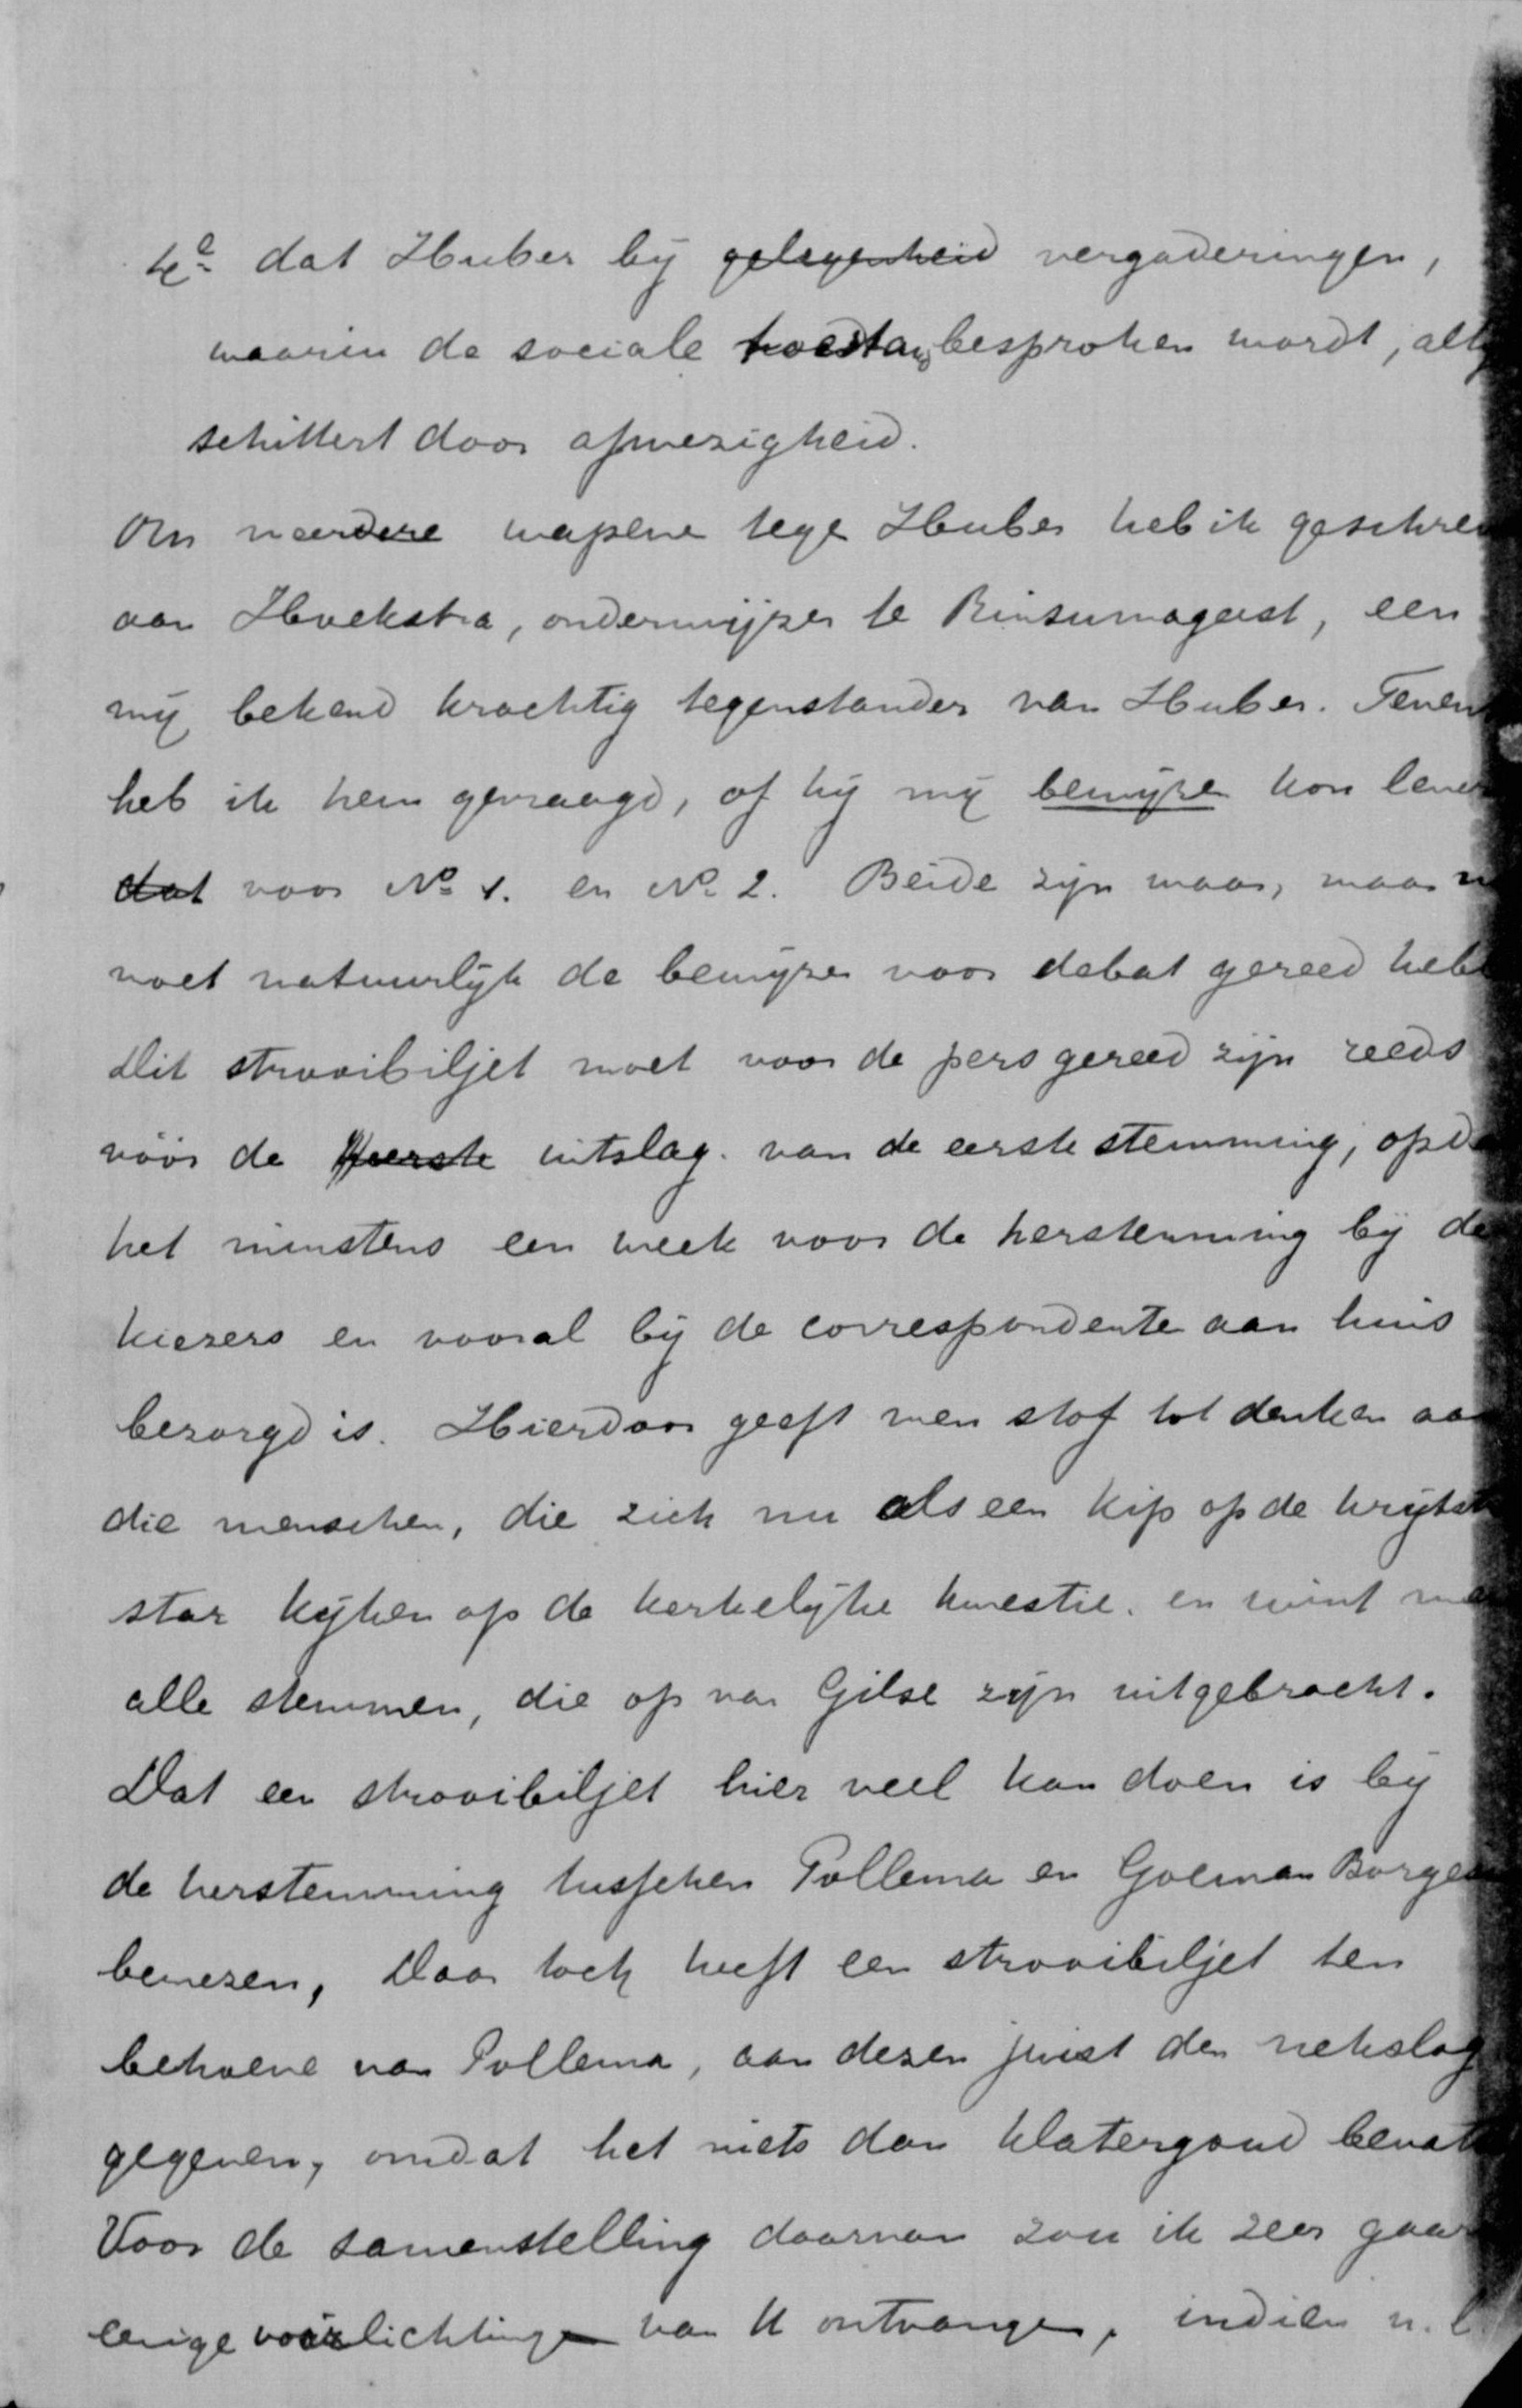 4e dat Huber bij gelegenheid vergaderingen,
waarin de sociale toestand besproken wordt, alty
schittert door afwezigheid.
Om meerdere wapene tege Huber heb ik geschre
aan Hoekstra, onderwijzer te Rinsumageest, een
mij bekend krachtig tegenstander van Huber. Tevens
heb ik hem gevraagd, of hij mij bewijze kon lever
dat voor No 1. en No 2. Beide zijn waar, maar
moet natuurlijk de bewijze voor debat gereed hebb
Dit strooibiljet moet voor de pers gereed zijn reeds
vóór de eerste uitslag van de eerste stemming, opda
het minstens een week voor de herstemming bij de
kiezers en vooral bij de correspondente aan huis
bezorgd is. Hierdoor geeft men stof tot denken aan
die menschen, die zich nu als een kip op de krijtst
star kijken op de kerkelijke kwestie. en wint me
alle stemmen, die op van Gilse zijn uitgebracht.
Dat een strooibiljet hier veel kan doen is bij
de herstemming tusschen Pollema en Goeman Borges
bewezen, Daar toch heeft een strooibiljet ten
behoeve van Pollema, aan dezen juist den nekslag
gegeven, omdat het niets dan klatergoud bevat
Voor de samenstelling daarvan zou ik zeer gaar
eenige voorlichtinge van U ontvange, indien n. l.